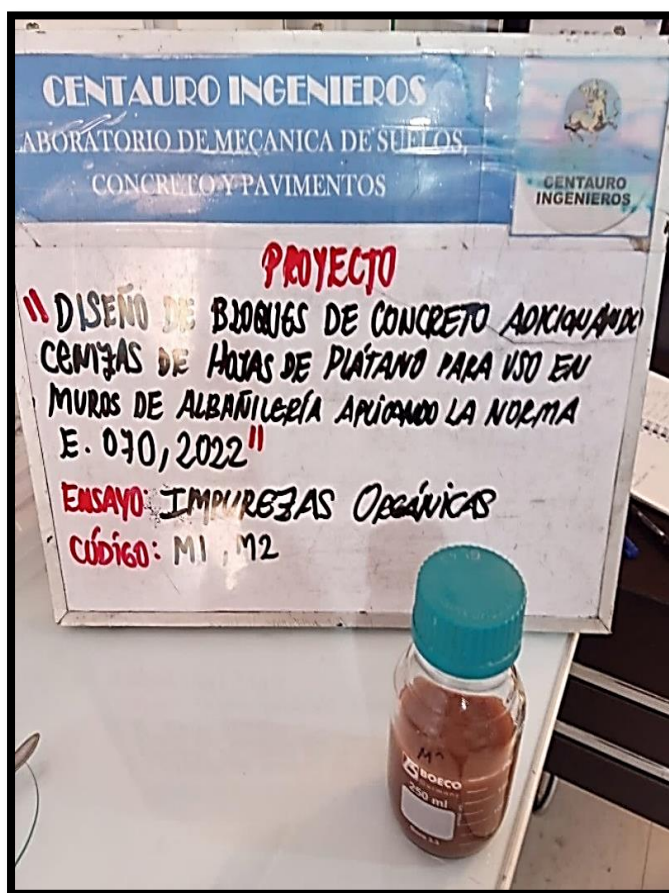 CENTAURO INGENIEROS
ABORATORIO DE MECANICA DE SUELOS,
CONCRETO Y PAVIMENTOS
CENTAURO
INGENIEROS
PROYECTO
"DISEÑO DE BLOQUES DE CONCRETO ADICIONANDO
CENIZAS DE HOJAS DE PLÁTANO PARA USO EN
MUROS DE ALBAÑILERÍA APLICANDO LA NORMA
E. 070, 2022"
ENSAYO: IMPUREZAS ORGÁNICAS
CÓDIGO: M1, M2
BOECO
Germany
250 ml